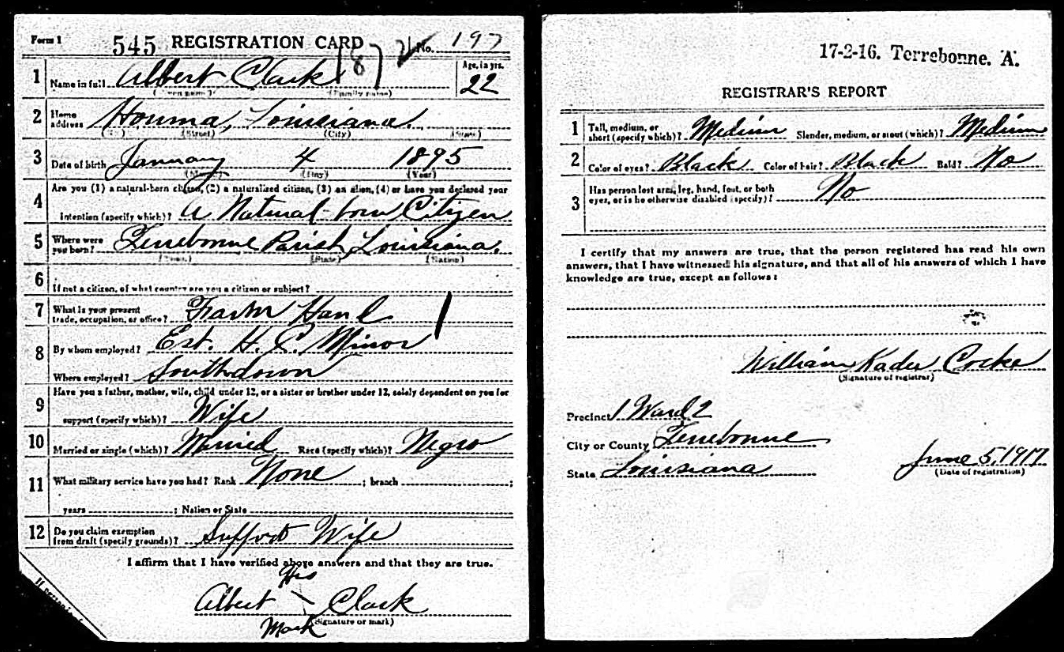 Form 1 545 REGISTRATION CARD 1872 No. 197
1 Name in full Albert Clark Age, in yrs. 22
(Given name) (Family name)
2 Home address Houma, Louisiana.
(No.) (Street) (City) (State)
3 Date of birth January 4 1895
(Month) (Day) (Year)
4 Are you (1) a natural-born citizen, (2) a naturalized citizen, (3) an alien, (4) or have you declared your
intention (specify which)? A Natural-born Citizen
5 Where were you born? Terrebonne Parish Louisiana.
(Town) (State) (Nation)
6 If not a citizen, of what country are you a citizen or subject?
7 What is your present trade, occupation, or office? Farm Hand
8 By whom employed? Est. H. C. Minor
Where employed? Southdown
9 Have you a father, mother, wife, child under 12, or a sister or brother under 12, solely dependent on you for
support (specify which)? Wife
10 Married or single (which)? Married Race (specify which)? Negro
11 What military service have you had? Rank None ; branch ;
years ; Nation or State
12 Do you claim exemption from draft (specify grounds)? Support Wife
I affirm that I have verified above answers and that they are true.
His
Albert \ Clark
Mark (Signature or mark)
17-2-16. Terrebonne. A.
REGISTRAR'S REPORT
1 Tall, medium, or short (specify which)? Medium Slender, medium, or stout (which)? Medium
2 Color of eyes? Black Color of hair? Black Bald? No
3 Has person lost arm, leg, hand, foot, or both
eyes, or is he otherwise disabled (specify)? No
I certify that my answers are true, that the person registered has read his own
answers, that I have witnessed his signature, and that all of his answers of which I have
knowledge are true, except as follows:
William Kader Cocke
(Signature of registrar)
Precinct 1 Ward 2
City or County Terrebonne
State Louisiana June 5, 1917
(Date of registration)